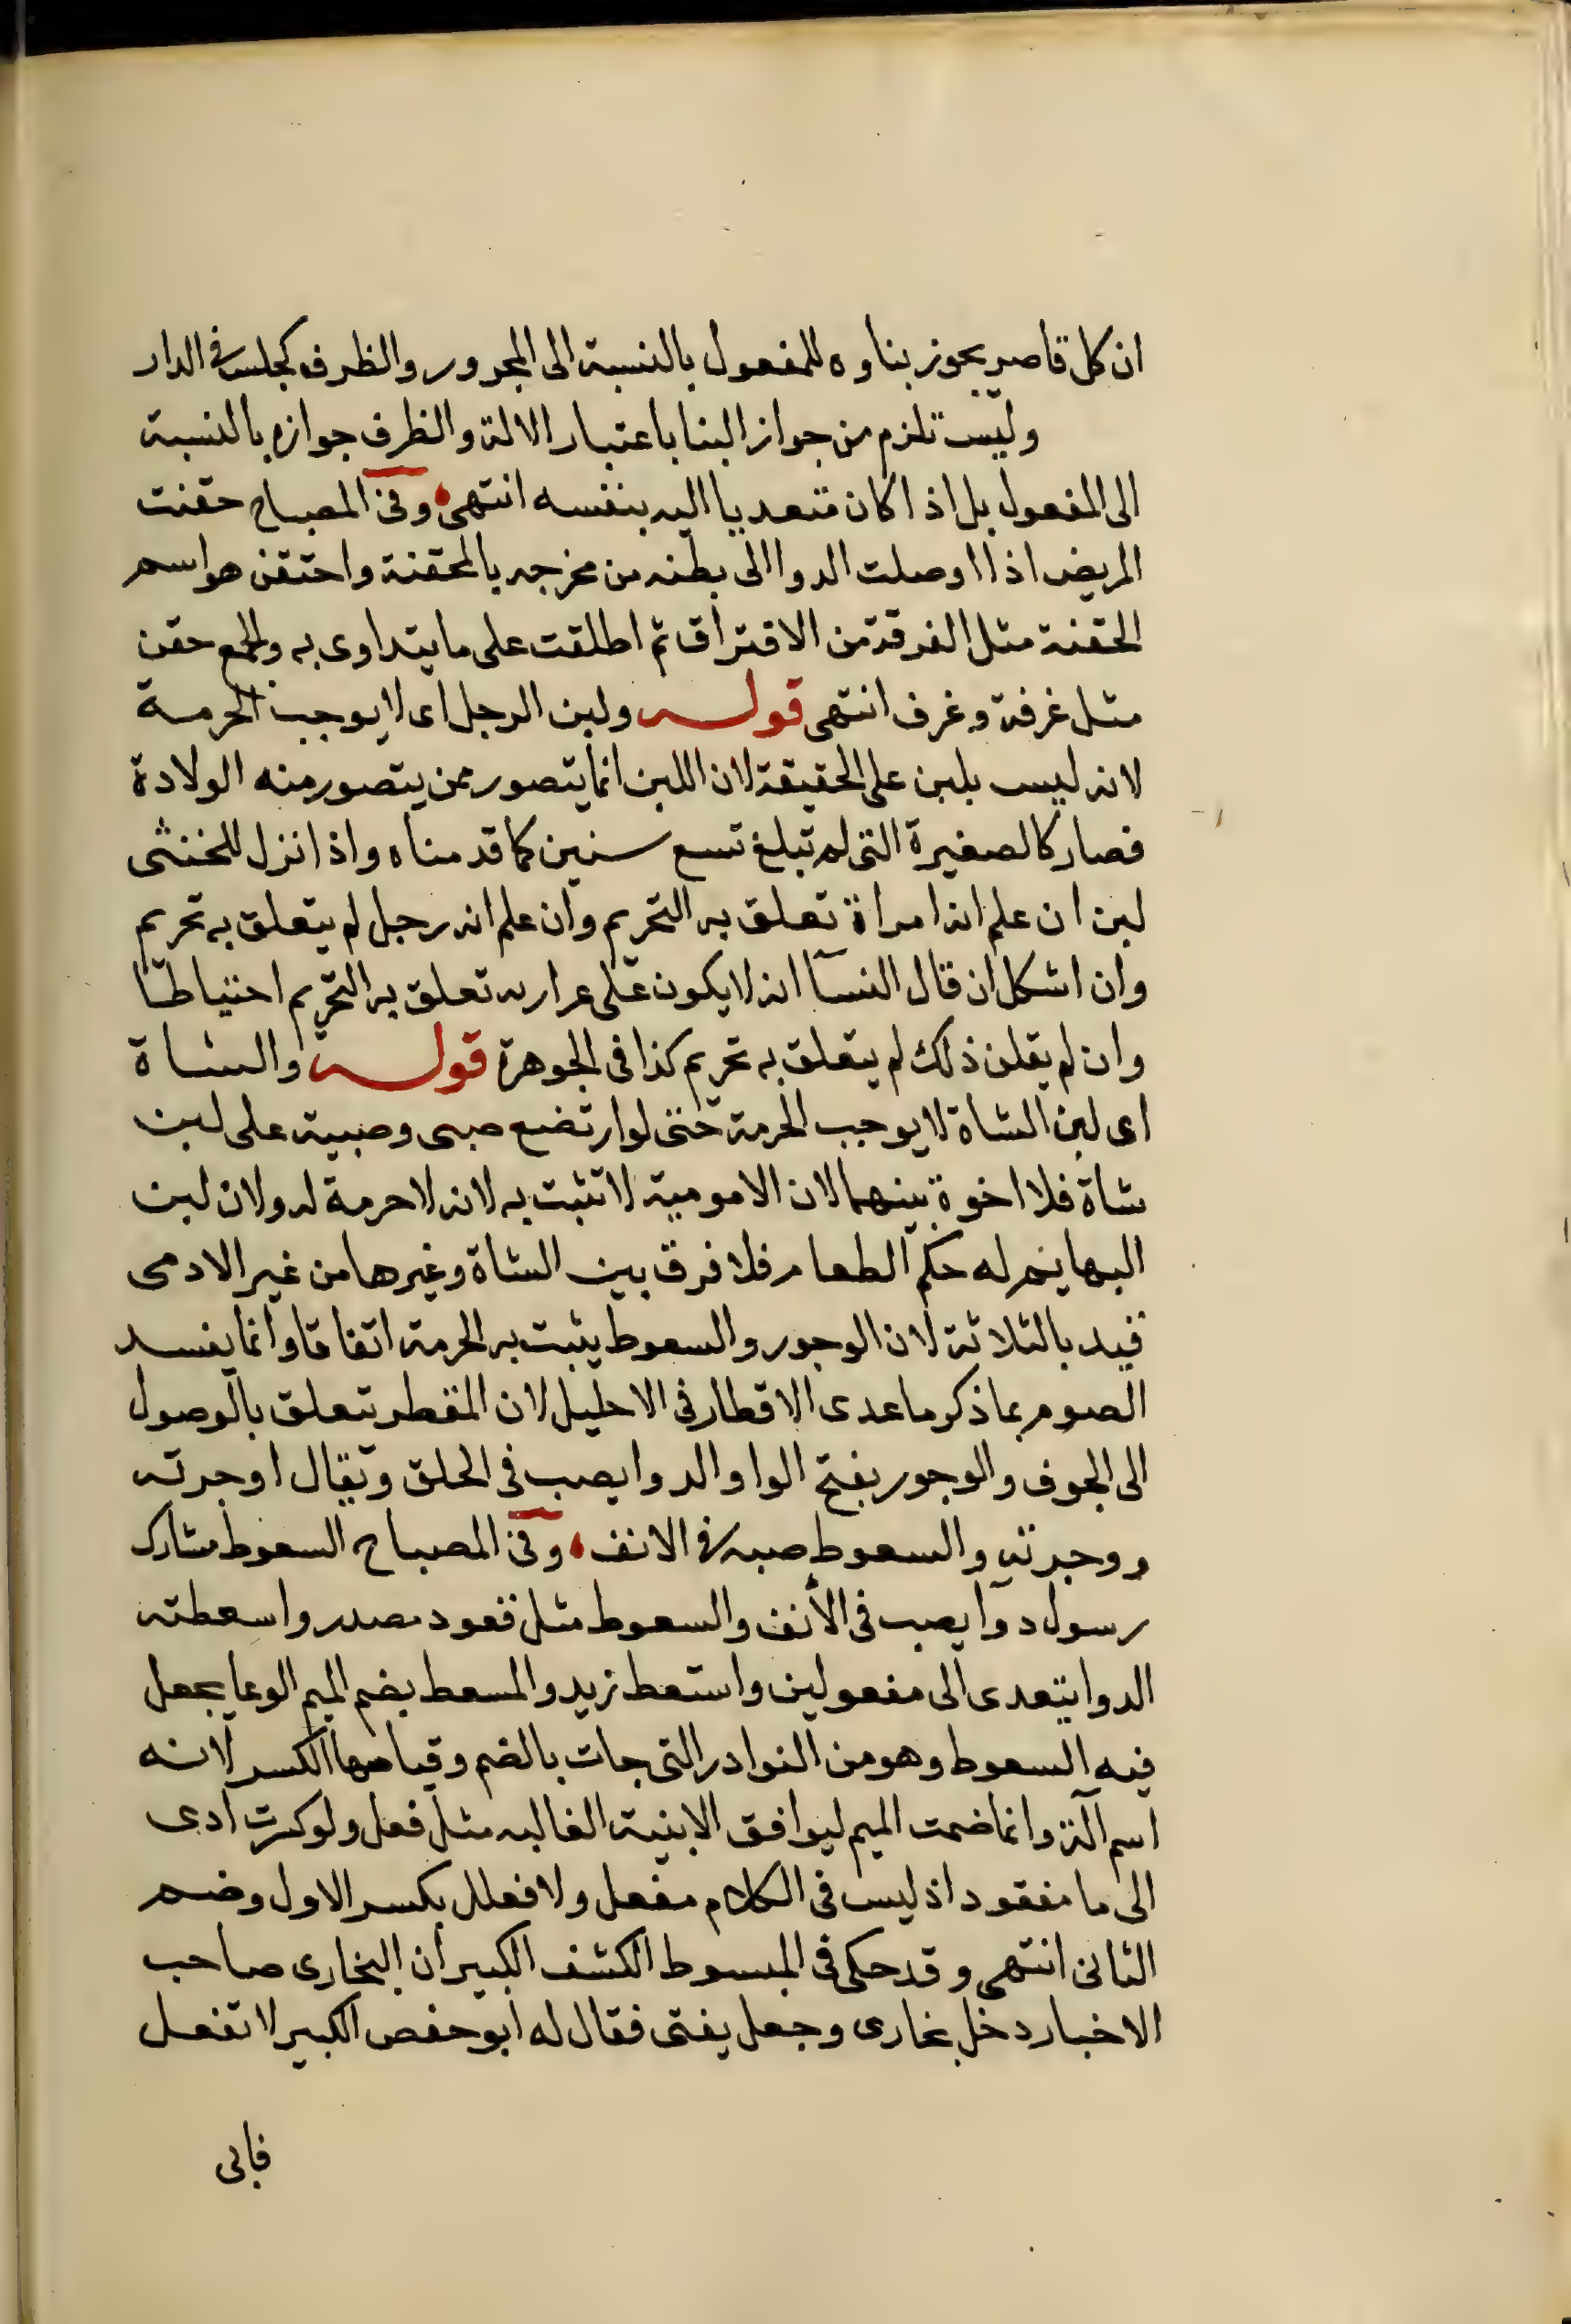 ان كل قاصر يجوز بناوه للمفعول بالنسبة الى المجرور والظرف كجلس في الدار
وليس تلزم من جواز البنا باعتبار الالة والظرف جوازه بالنسبة
الى المفعول بل اذا كان متعديا اليه بنفسه انتهى وفي المصباح حقنت
المريض اذا اوصلت الدوا الى بطنه من مخرجه بالمحقنة واحتقن هو اسم
الحقنة مثل الفرقة من الافتراق ثم اطلقت على ما يتداوى به والجمع حقن
مثل غرفة وغرف انتهى قوله ولبن الرجل اى لا يوجب الحرمة
لانه ليس بلبن على الحقيقة لان اللبن انما يتصور ممن يتصور منه الولادة
فصار كالصغيرة التى لم تبلغ تسع سنين كما قدمناه واذا نزل للخنثى
لبن ان علم انه امراة تعلق به التحريم وان علم انه رجل لم يتعلق به تحريم
وان اشكل ان قال النسآ انه لا يكون على غرارته تعلق به التحريم احتياطا
وان لم يقلن ذلك لم يتعلق به تحريم كذا فى الجوهرة قوله والشاة
اى لبن الشاة لا يوجب الحرمة حتى لو ارتضع صبى وصبية على لبن
شاة فلا اخوة بينهما لان الامومية لا تثبت به لانه لا حرمة له ولان لبن
البهايم له حكم الطعام فلا فرق بين الشاة وغيرها من غير الادمى
قيد بالثلاثة لان الوجور والسعوط يثبت به الحرمة اتفاقا وانما يفسد
الصوم بما ذكر ما عدى الاقطار فى الاحليل لان المفطر يتعلق بالوصول
الى الجوف والوجور بفتح الواو الدوا يصب فى الحلق ويقال اوجرته
ووجرته والسعوط صبه فى الانف وفي المصباح السعوط مثل
رسول دوآ يصب فى الأنف والسعوط مثل قعود مصدر واسعطته
الدوا يتعدى الى مفعولين واستعط زيد والمسعط بضم الميم الوعا يجعل
فيه السعوط وهو من النوادر التى جات بالضم وقياسها الكسر لانه
اسم آلة وانما ضمت الميم ليوافق الابنية الغالبه مثل فعلل ولو كسرت ادى
الى ما مفقود اذ ليس فى الكلام مفعل ولا فعلل بكسر الاول وضم
الثانى انتهى وقد حكى فى المبسوط الكشف الكبير ان البخارى صاحب
الاخبار دخل بخارى وجعل يفتى فقال له ابو حفص الكبير لا تفعل
فابى